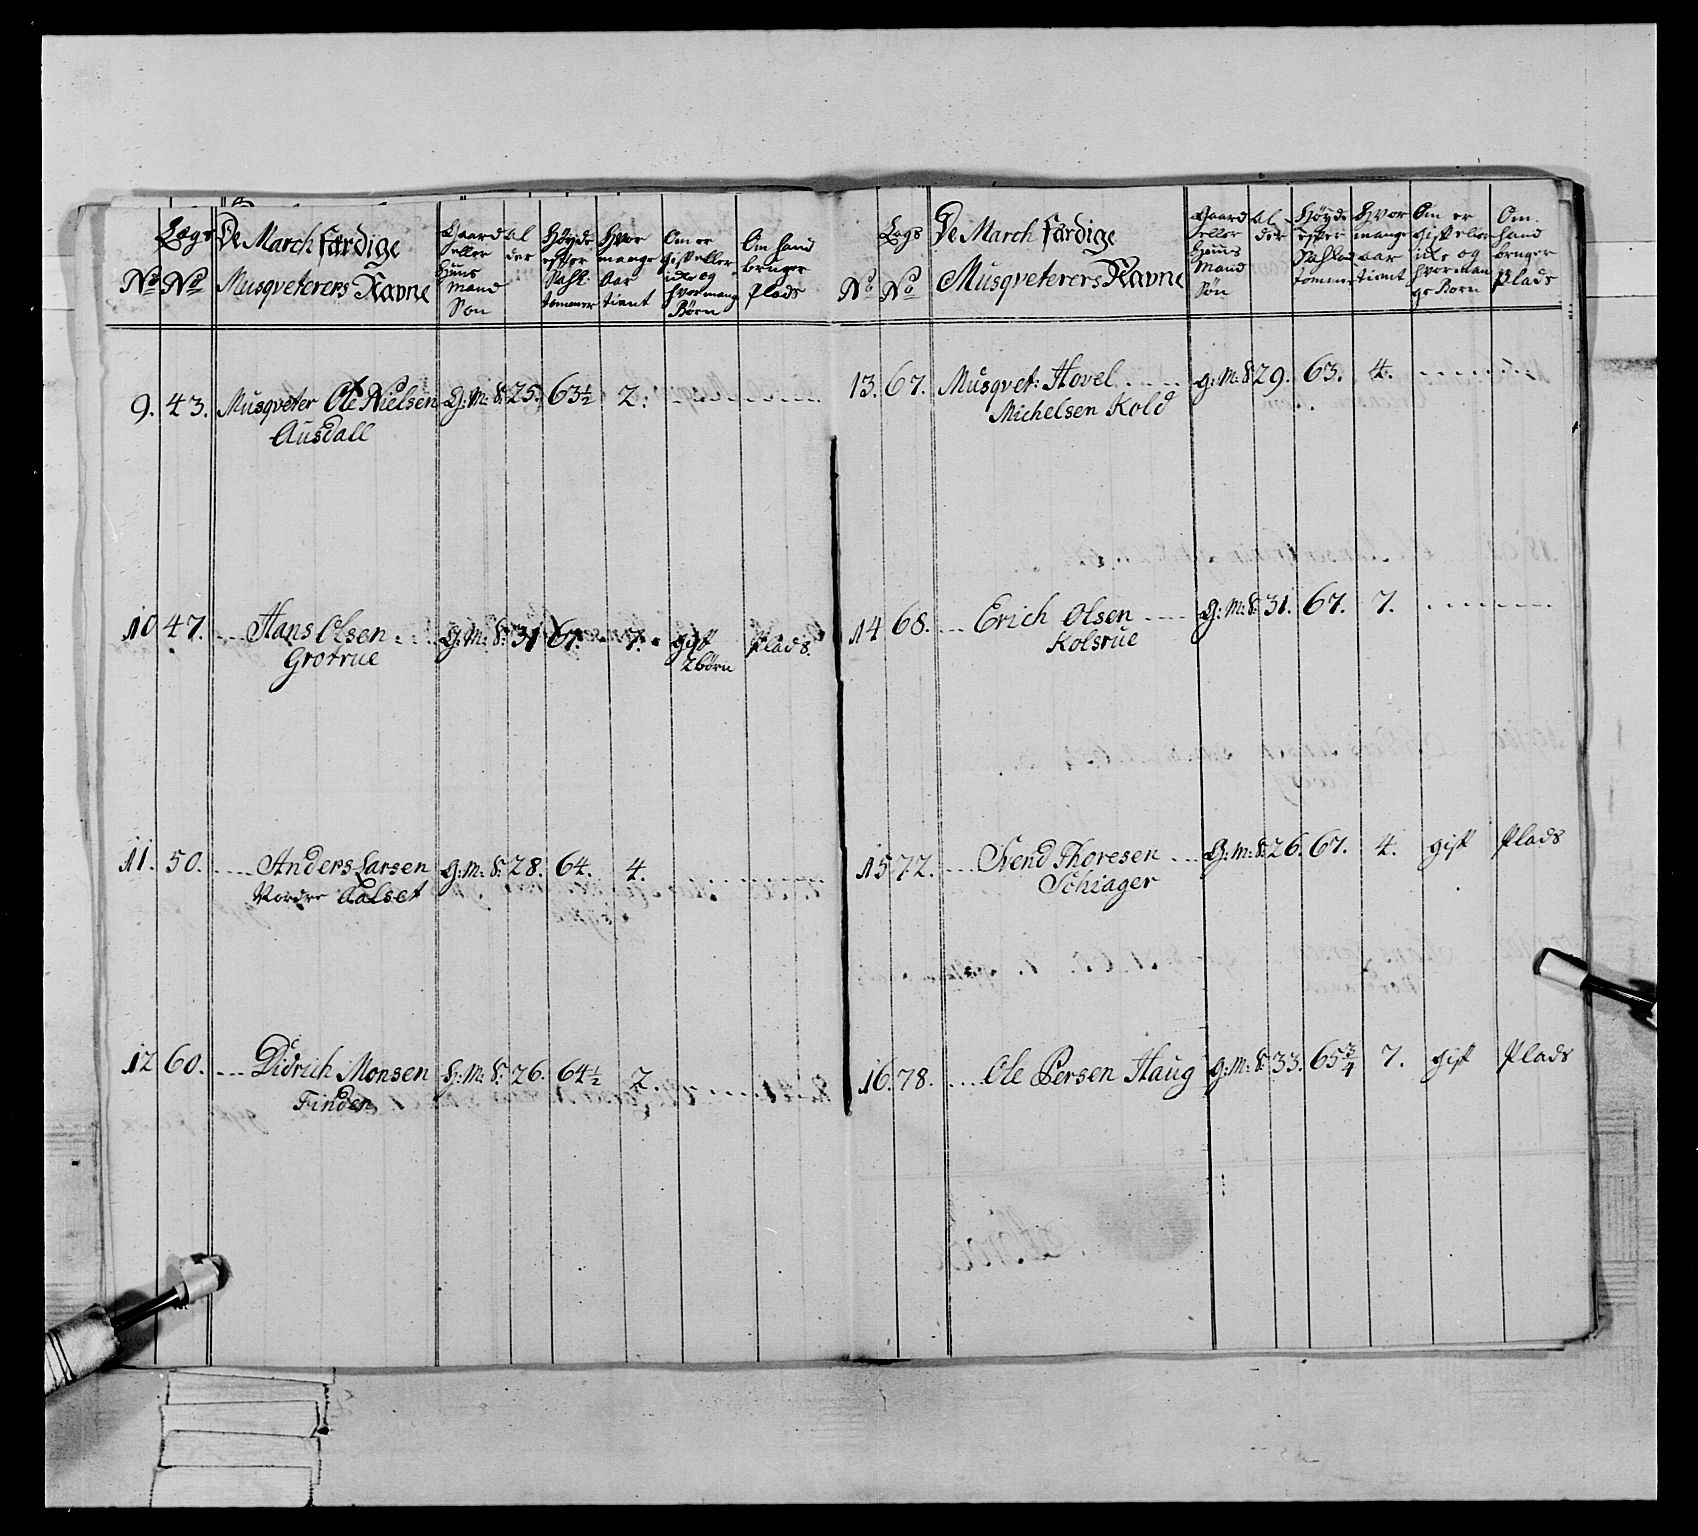 No
Lægs No
De March færdige Musqveterers Navne
Gaard eller Huus Mand Søn
Al der
Høyde efter Sahl. tommer
Hvor mange Aar tient
Om er gift eller icke og hvor mange Børn
Om hand bruger Plads
9. 43. Musqveter Ole Nielsen G: M: S: 25. 63½ 2.
Ausdall
10 47. Hans Olsen G: M: S: 31 67. 7. gift Plads.
Grotrue 2 börn
11. 50. Anders Larsen G: M: S: 28. 64. 4.
Nordre Aalset
12 60. Didrich Monsen H: M: S: 26. 64½ 2.
Finden
No
Logs No
De March færdige Musqveterers Navne
Gaard eller Huus Mand Søn
Al der
Høyde efter tomme
Hvor mange aar tient
Om er gift eller icke og hvor man ge Børn
Om hand bruger Plads
13. 67. Musqvet: Hovel G: M: S: 29. 63. 4.
Michelsen Kold
14 68. Erich Olsen G: M: S: 31. 67. 7.
Kolsrue
15 72. Svend Thoresen G: M: S: 26. 67. 4. gift Plads
Schiager
16. 78. Ole Persen Haug G: M: S: 33. 65¾ 7. gift Plads